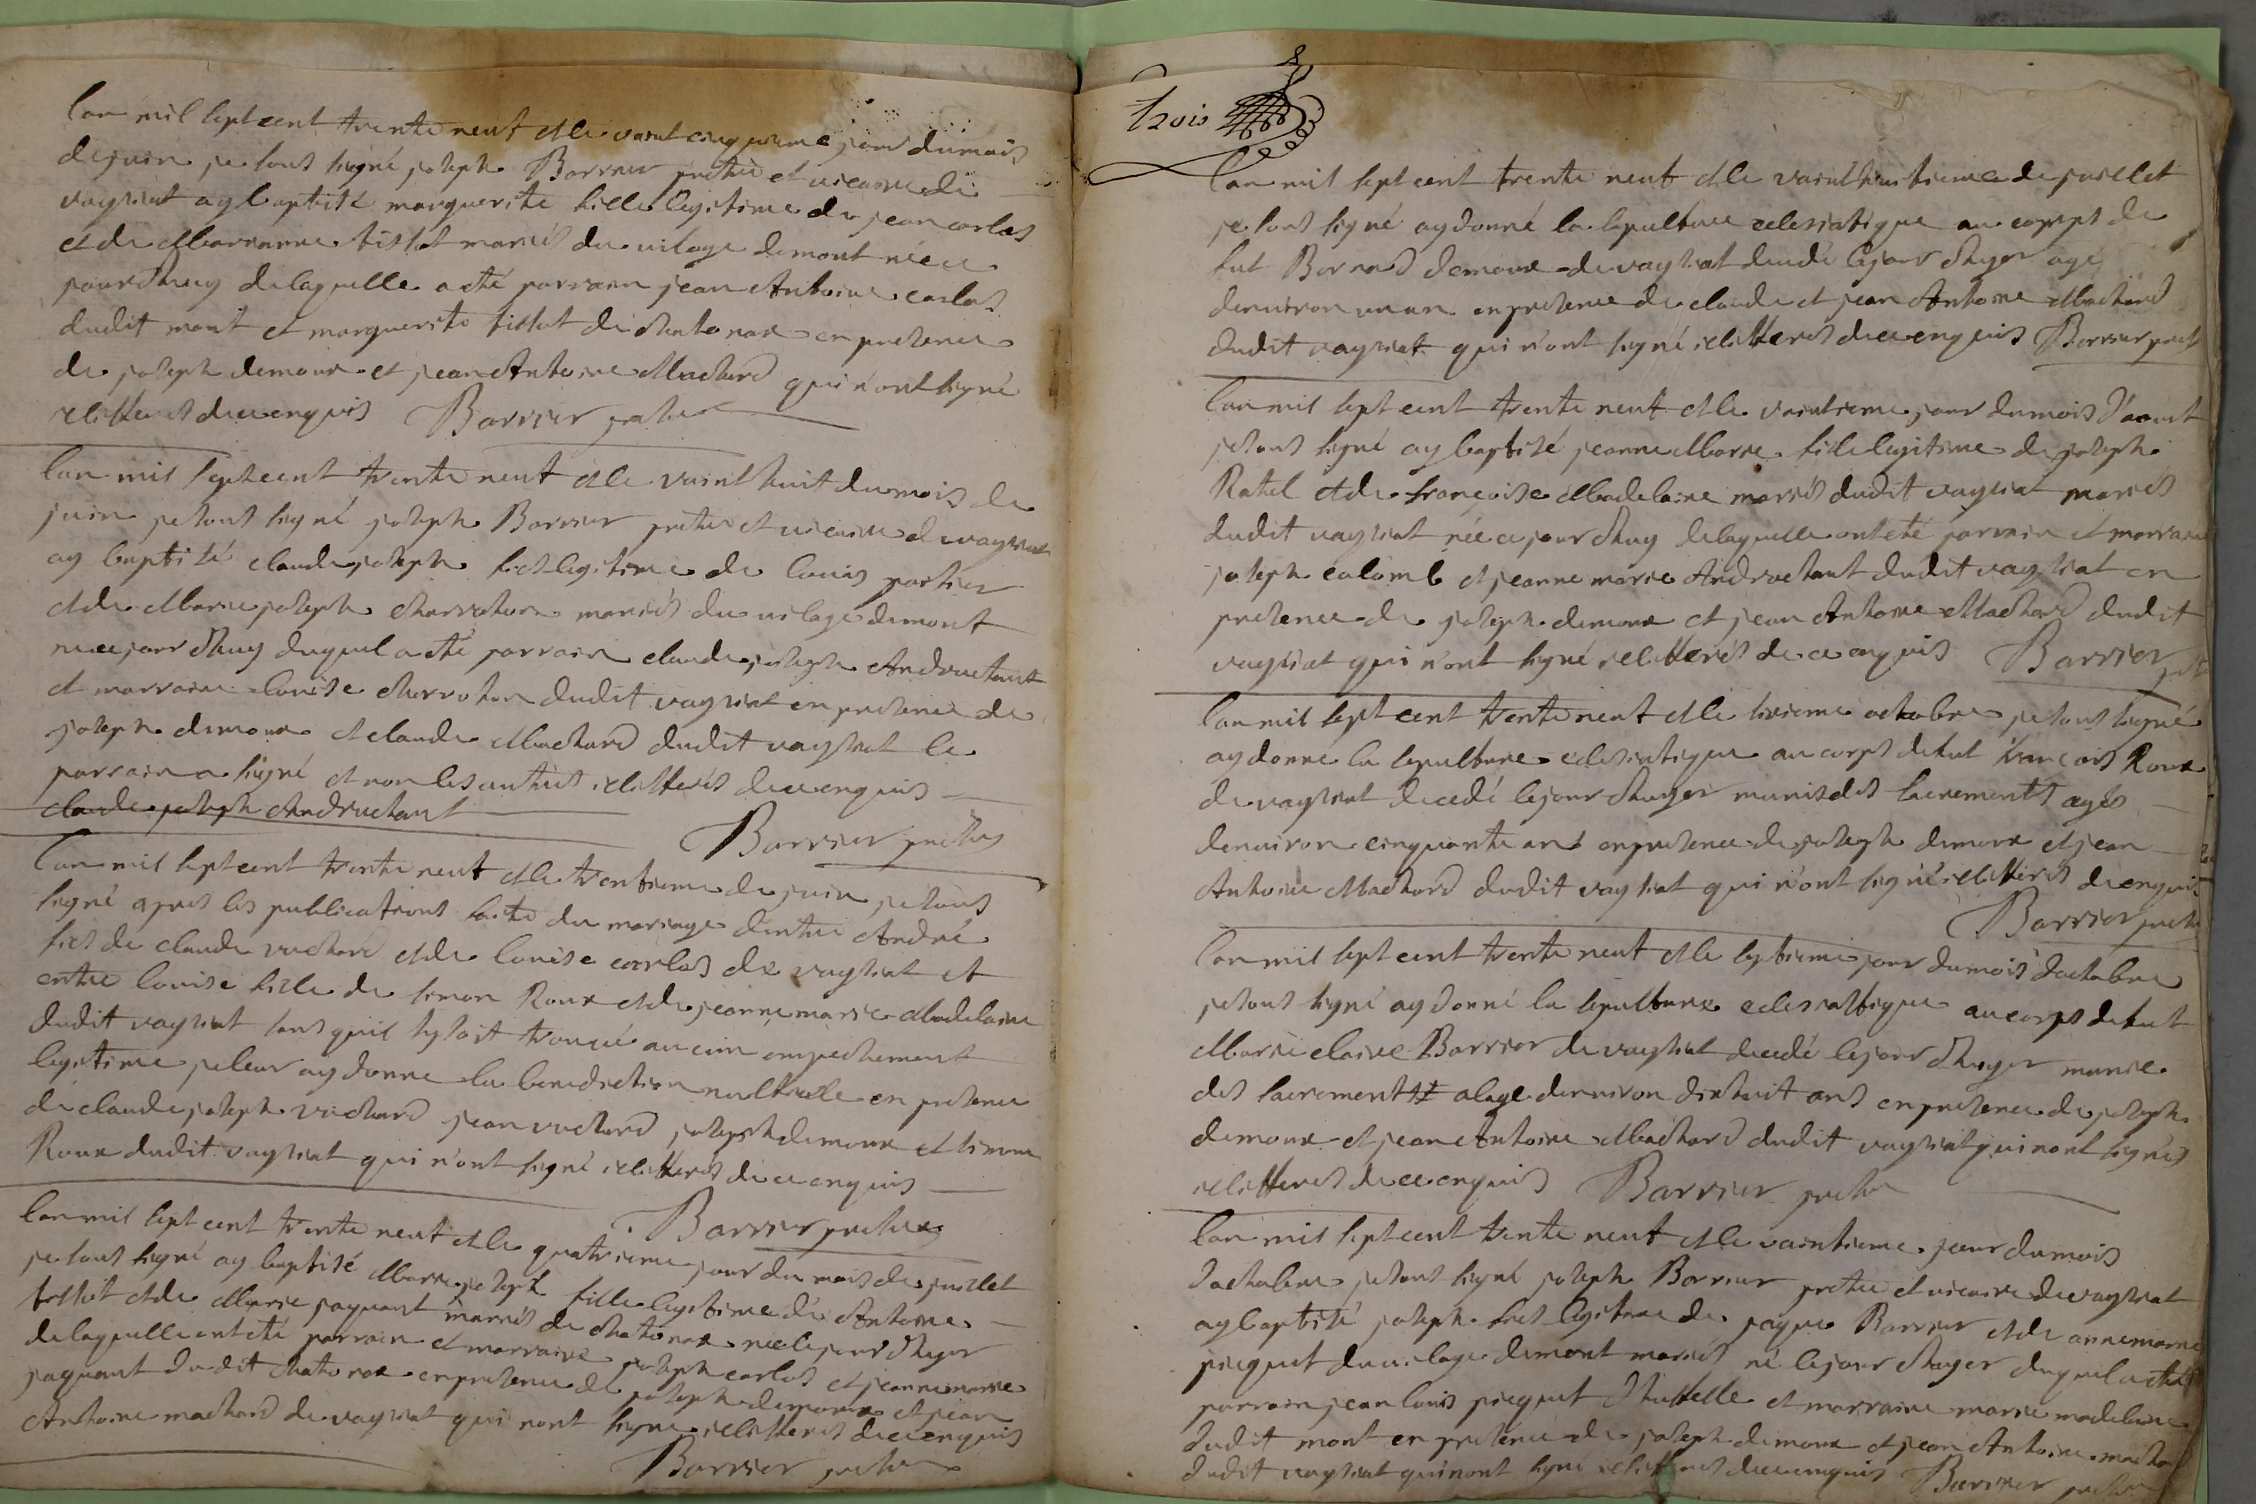 Lan mil sept cent trente neuf et le vaint cinquieme jour du mois
de juin je sous signé joseph Barrier pretre et vicaire de
vaysiat ay baptisé marguerite fille legitime de jean carlas
et de Marianne tissot mariés du vilage demont née ce
jourdhuy de laquelle a eté parrain jean Antoine carlas
dudit mont et marguerite tissot de chatonax en presence
de joseph demoux et jean Antoine Machard qui n'ont signé
illitterés de ce enquis Barrier pretre
Lan mil sept cent trente neuf et le vaint huit du mois de
juin je sous signé joseph Barrier pretre et vicaire de vaysiat
ay baptisé claude joseph fils legitime de louis portier
et de Marie joseph charroton mariés du vilage demont
né ce jourdhuy duquel a eté parrain claude joseph Andruetant
et marraine louise charroton dudit vaysiat en presence de
joseph demoux et claude Machard dudit vaysiat le
parrain a signé et non les autres illitterés de ce enquis
claude joseph Andruetant
Barrier pretre
Lan mil sept cent trente neuf et le trentieme de juin je sous
signé apres les publications faite du mariage dentre André
fils de claude vuchard et de louise carlas de vaysiat et
entre louise fille de simon Roux et de jeanne marie Madelaine
dudit vaysiat sans quil sy soit trouvé aucun empechement
legitime je leur ay donne la benediction nuptiale en presence
de claude joseph vuchard jean vuchard joseph demoux et simon
Roux dudit vaysiat qui n'ont signé illitterés de ce enquis
Barrier pretre
Lan mil sept cent trente neuf et le quatrieme jour du mois de juillet
je sous signé ay baptisé Marie joseph fille legitime de Antoine
tissot et de Marie paquant mariés de chatonax née le jour dhyer
de laquelle ont eté parrain et marraine joseph carlas et jeanne marie
paquant dudit chatonax en presence de joseph demoux et jean
Antoine machard de vaysiat qui nont signe illitterés de ce enquis
Barrier pretre
trois
Lan mil sept cent trente neuf et le vaint huitieme de juillet
je sous signé ay donné la sepulture eclesiatique au corps de
fut Bernard demoux de vaysiat decedé le jour dhyer agé
denviron un an en presence de claude et jean Antoine Machard
dudit vaysiat qui n'ont signé illitterés de ce enquis Barrier pretre
Lan mil sept cent trente neuf et le vaintieme jour du mois d'aoust
je sous signé ay baptisé jeanne Marie fille legitime de joseph
Ratel et de françoise Madelaine mariés dudit vaysiat mariés
dudit vaysiat née ce jourdhuy de laquelle ont eté parrain et marraine
joseph colomb et jeanne marie Andruetant dudit vaysiat en
presence de joseph demoux et jean Antoine Machard dudit
vaysiat qui n'ont signé illitterés de ce enquis Barrier pretre
Lan mil sept cent trente neuf et le sixieme octobre je sous signé
ay donné la sepulture eclesiatique au corps de fut françois Roux
de vaysiat decedé le jour dhyer munis des sacrements agés
denviron cinquante ans en presence de joseph demoux et jean
Antoine Machard dudit vaysiat qui n'ont signé illitterés de enquis
Barrier pretre
Lan mil sept cent trente neuf et le septieme jour du mois d'octobre
je sous signé ay donné la sepulture eclesiastique au corps de fut
Marie claire Barrier de vaysiat decedé le jour dhyer munie
des sacrements a lage denviron dixhuit ans en presence de joseph
demoux et jean Antoine Machard dudit vaysiat qui nont signés
illitterés de ce enquis Barrier pretre
Lan mil sept cent trente neuf et le vaintieme jour du mois
d'octobre je sous signé joseph Barrier pretre et vicaire de vaysiat
ay baptisé joseph fils legitime de jaque Barrier et de anne marie
picquet du vilage demont mariés né le jour dhyer duquel a eté
parrain jean louis picquet et marraine marie madelaine
dudit mont en presence de joseph demoux et jean Antoine machard
dudit vaysiat qui nont signé illitterés de ce enquis Barrier pretre